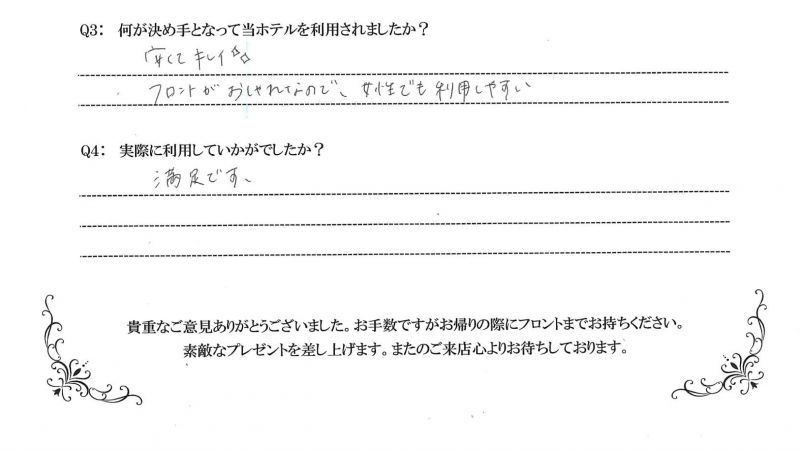 Q3： 何が決め手となって当ホテルを利用されましたか？
安くてキレイ☆☆
フロントがおしゃれなので、女性でも利用しやすい
Q4： 実際に利用していかがでしたか？
満足です、
貴重なご意見ありがとうございました。お手数ですがお帰りの際にフロントまでお持ちください。
素敵なプレゼントを差し上げます。またのご来店心よりお待ちしております。